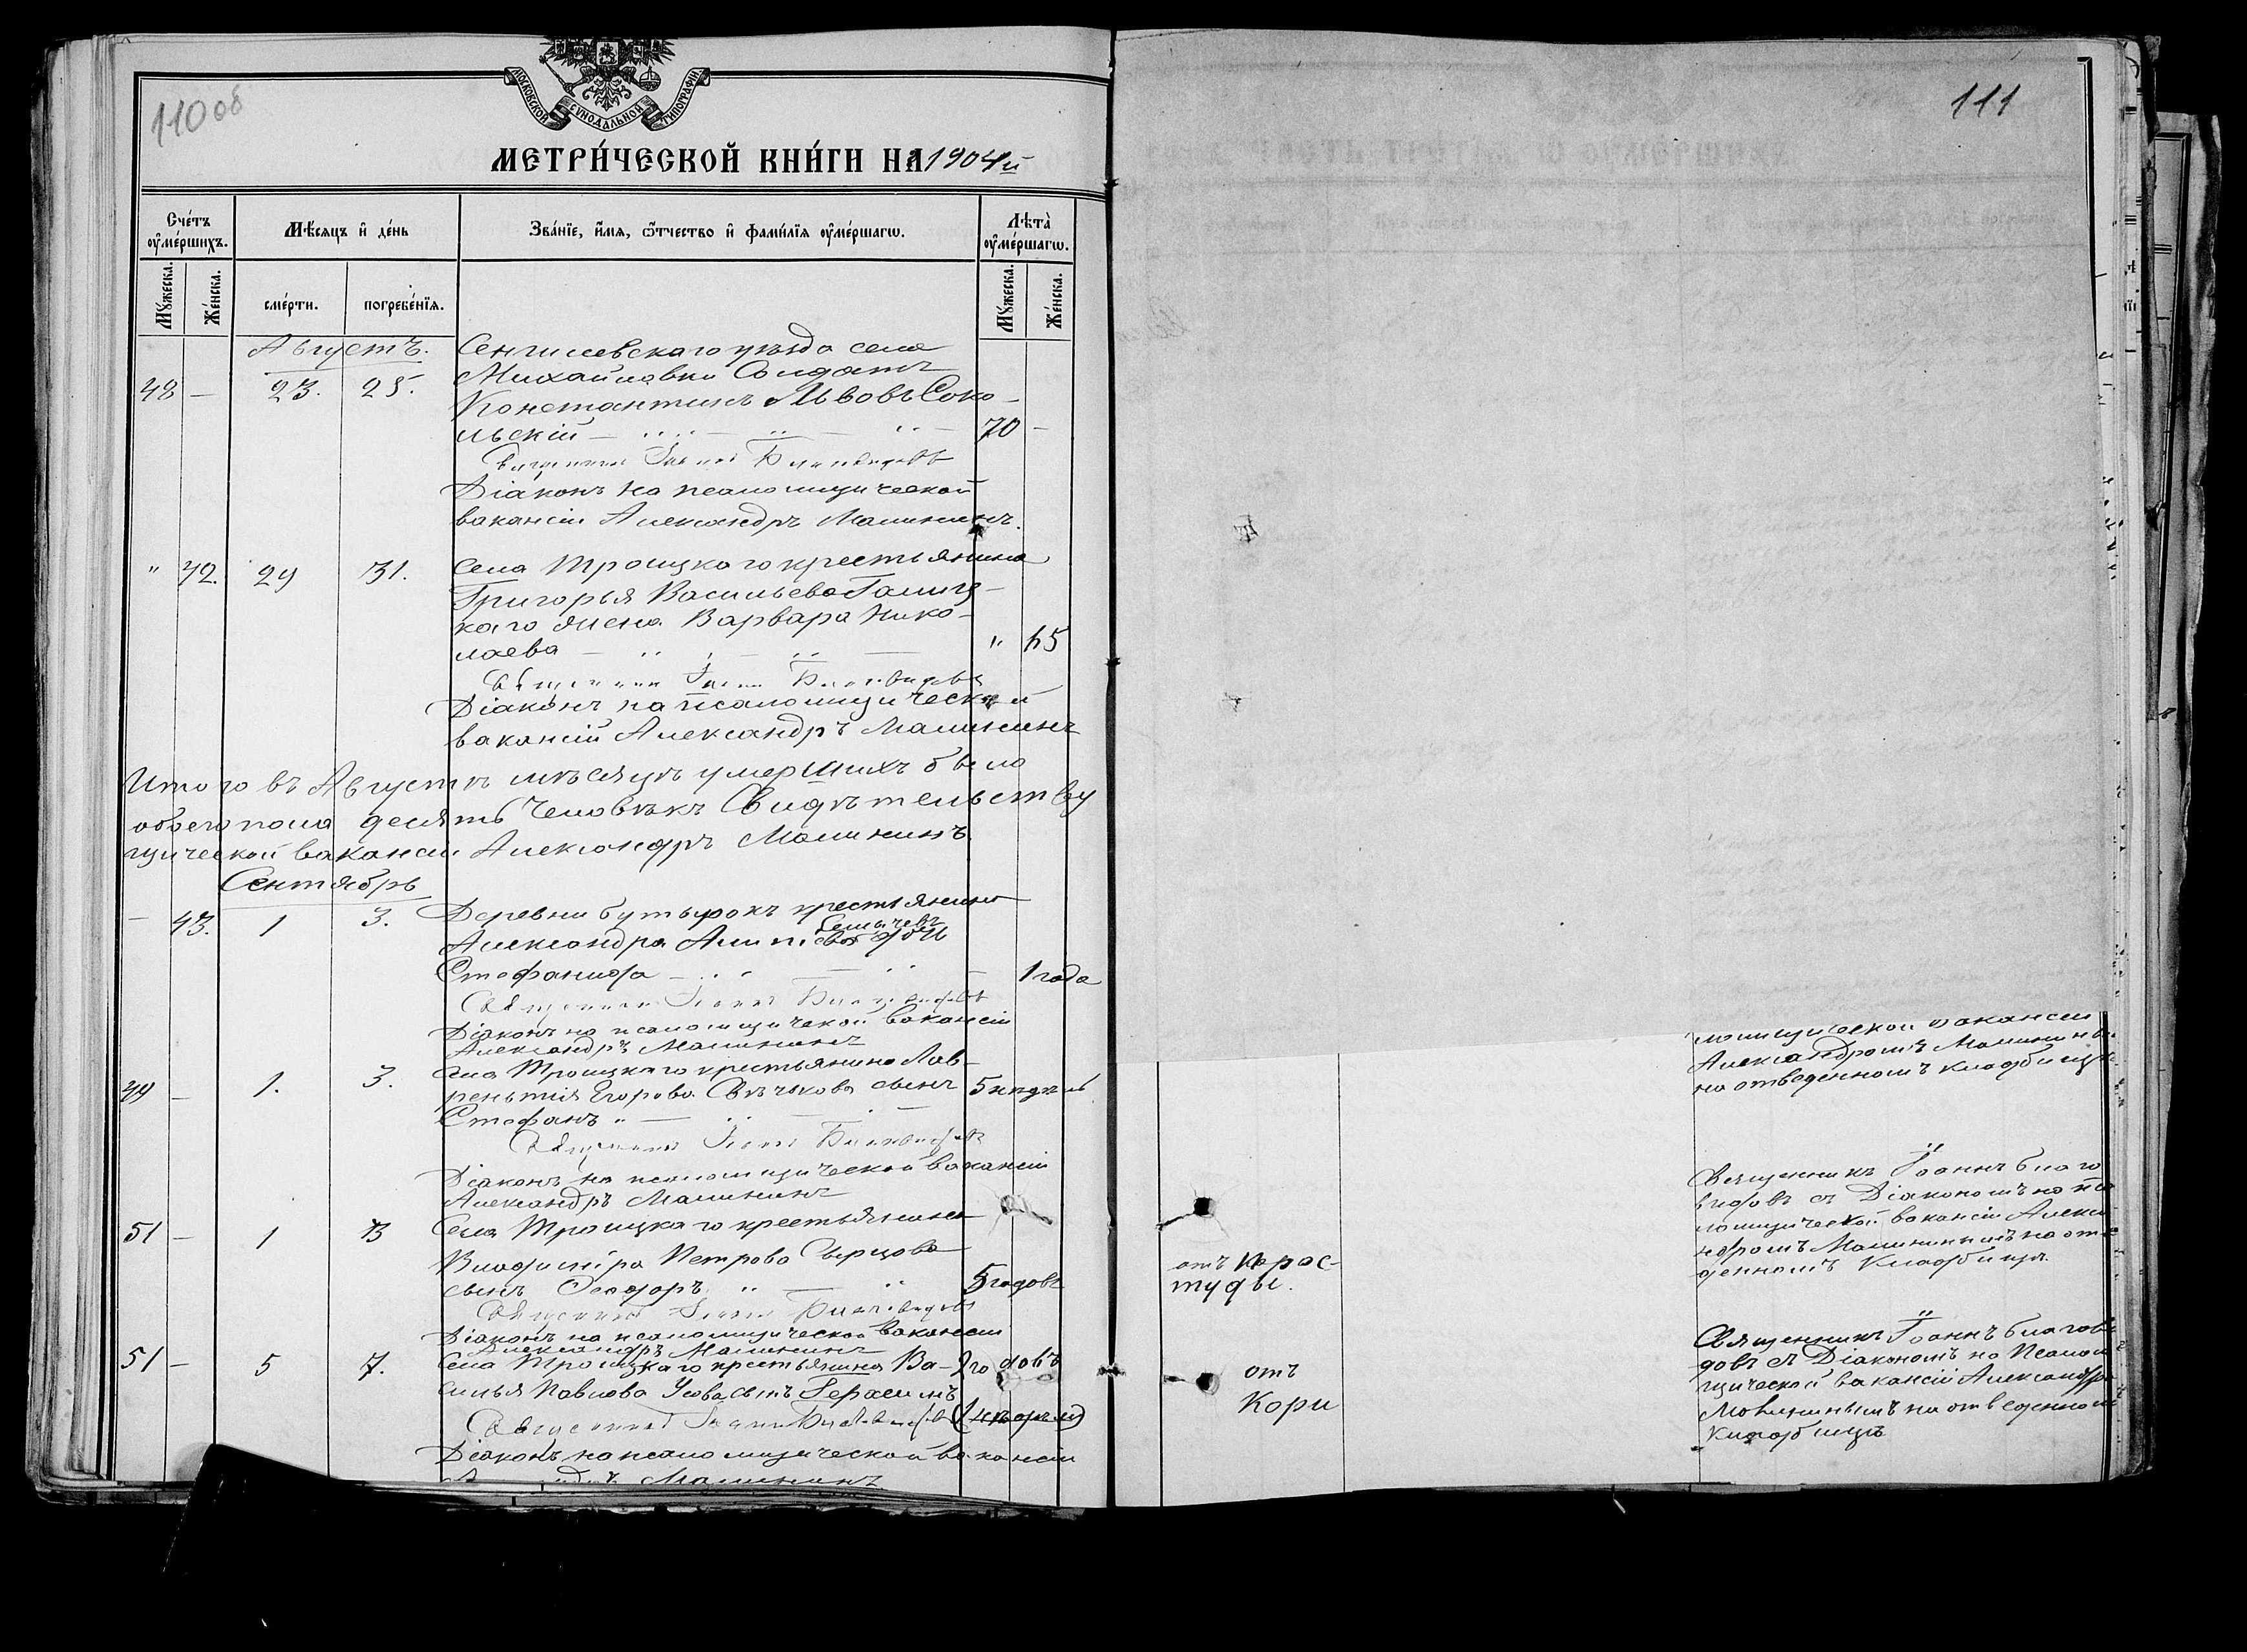 110 об
МОСКОВСКОЙ СѴНОДАЛЬНОЙ ТИПОГРАФІИ
МЕТРИ́ЧЕСКОЙ КНИ́ГИ НА 1904й
Сче́тъ оу҆ме́ршихъ.
Мѣ́сяцъ и҆ де́нь
Зва́нїе, и҆́мя, ѻ҆́тчество и҆ фами́лїя оу҆ме́ршагѡ.
Лѣ̀та оу҆ме́ршагѡ.
Мꙋ́жеска.
Же́нска.
сме́рти.
погребе́нїя.
Мꙋ́жеска.
Же́нска.
Августъ.
Сенгилевскаго уѣзда села
48 — 23. 25. Михайловки Солдатъ
Константинъ Львовъ Соко-
льскій — 70 —
Священникъ Іоаннъ Благовидовъ
Діаконъ на псаломщической
вакансіи Александръ Малининъ.
" 42. 29 31. Села Троицкаго крестьянина
Григорья Васильева Галиц-
каго жена Варвара Нико-
лаева — " 65
Священникъ Іоаннъ Благовидовъ
Діаконъ на псаломщической
вакансіи Александръ Малининъ
Итого въ Августѣ мѣсяцѣ умершихъ было
обоего пола десять человѣкъ Свидѣтельству
щической вакансіи Александръ Малининъ.
Сентябрь
— 43. 1 3. Деревни Бутырокъ крестьянина
Александра Алипіева дочь
Стефанида — 1 года
Священникъ Іоаннъ Благовидовъ
Діаконъ на псаломщической вакансіи
Александръ Малининъ
49 — 1. 3. Села Троицкаго крестьянина Лав-
рентія Егорова сынъ 5 недѣль
Стефанъ "
Священникъ Іоаннъ Благовидовъ
Діаконъ на псаломщической вакансіи
Александръ Малининъ
51 — 1 3 Села Троицкаго крестьянина
Владиміра Петрова Сырцова
сынъ Ѳеодоръ " — " 5 годовъ
Священникъ Іоаннъ Благовидовъ
Діаконъ на псаломщической вакансіи
Александръ Малининъ
51 — 5 7. Села Троицкаго крестьянина Ва- годовъ
силья Павлова Усова сынъ Герасимъ
Священникъ Іоаннъ Благовидовъ
Діаконъ на псаломщической вакансіи
Малининъ
111
ломщической вакансіи
Александромъ Малининым
на отведенномъ кладбищѣ
Священникъ Іоаннъ Благо
видовъ съ Діакономъ на пса
ломщической вакансіи Алекса
ндромъ Малининымъ на отве
денномъ Кладбищѣ.
отъ прос-
туды.
Священникъ Іоаннъ Благови
довъ съ Діакономъ на Псалом
щической вакансіи Александро
Малининымъ на отведенном
Кладбищѣ
отъ
Кори